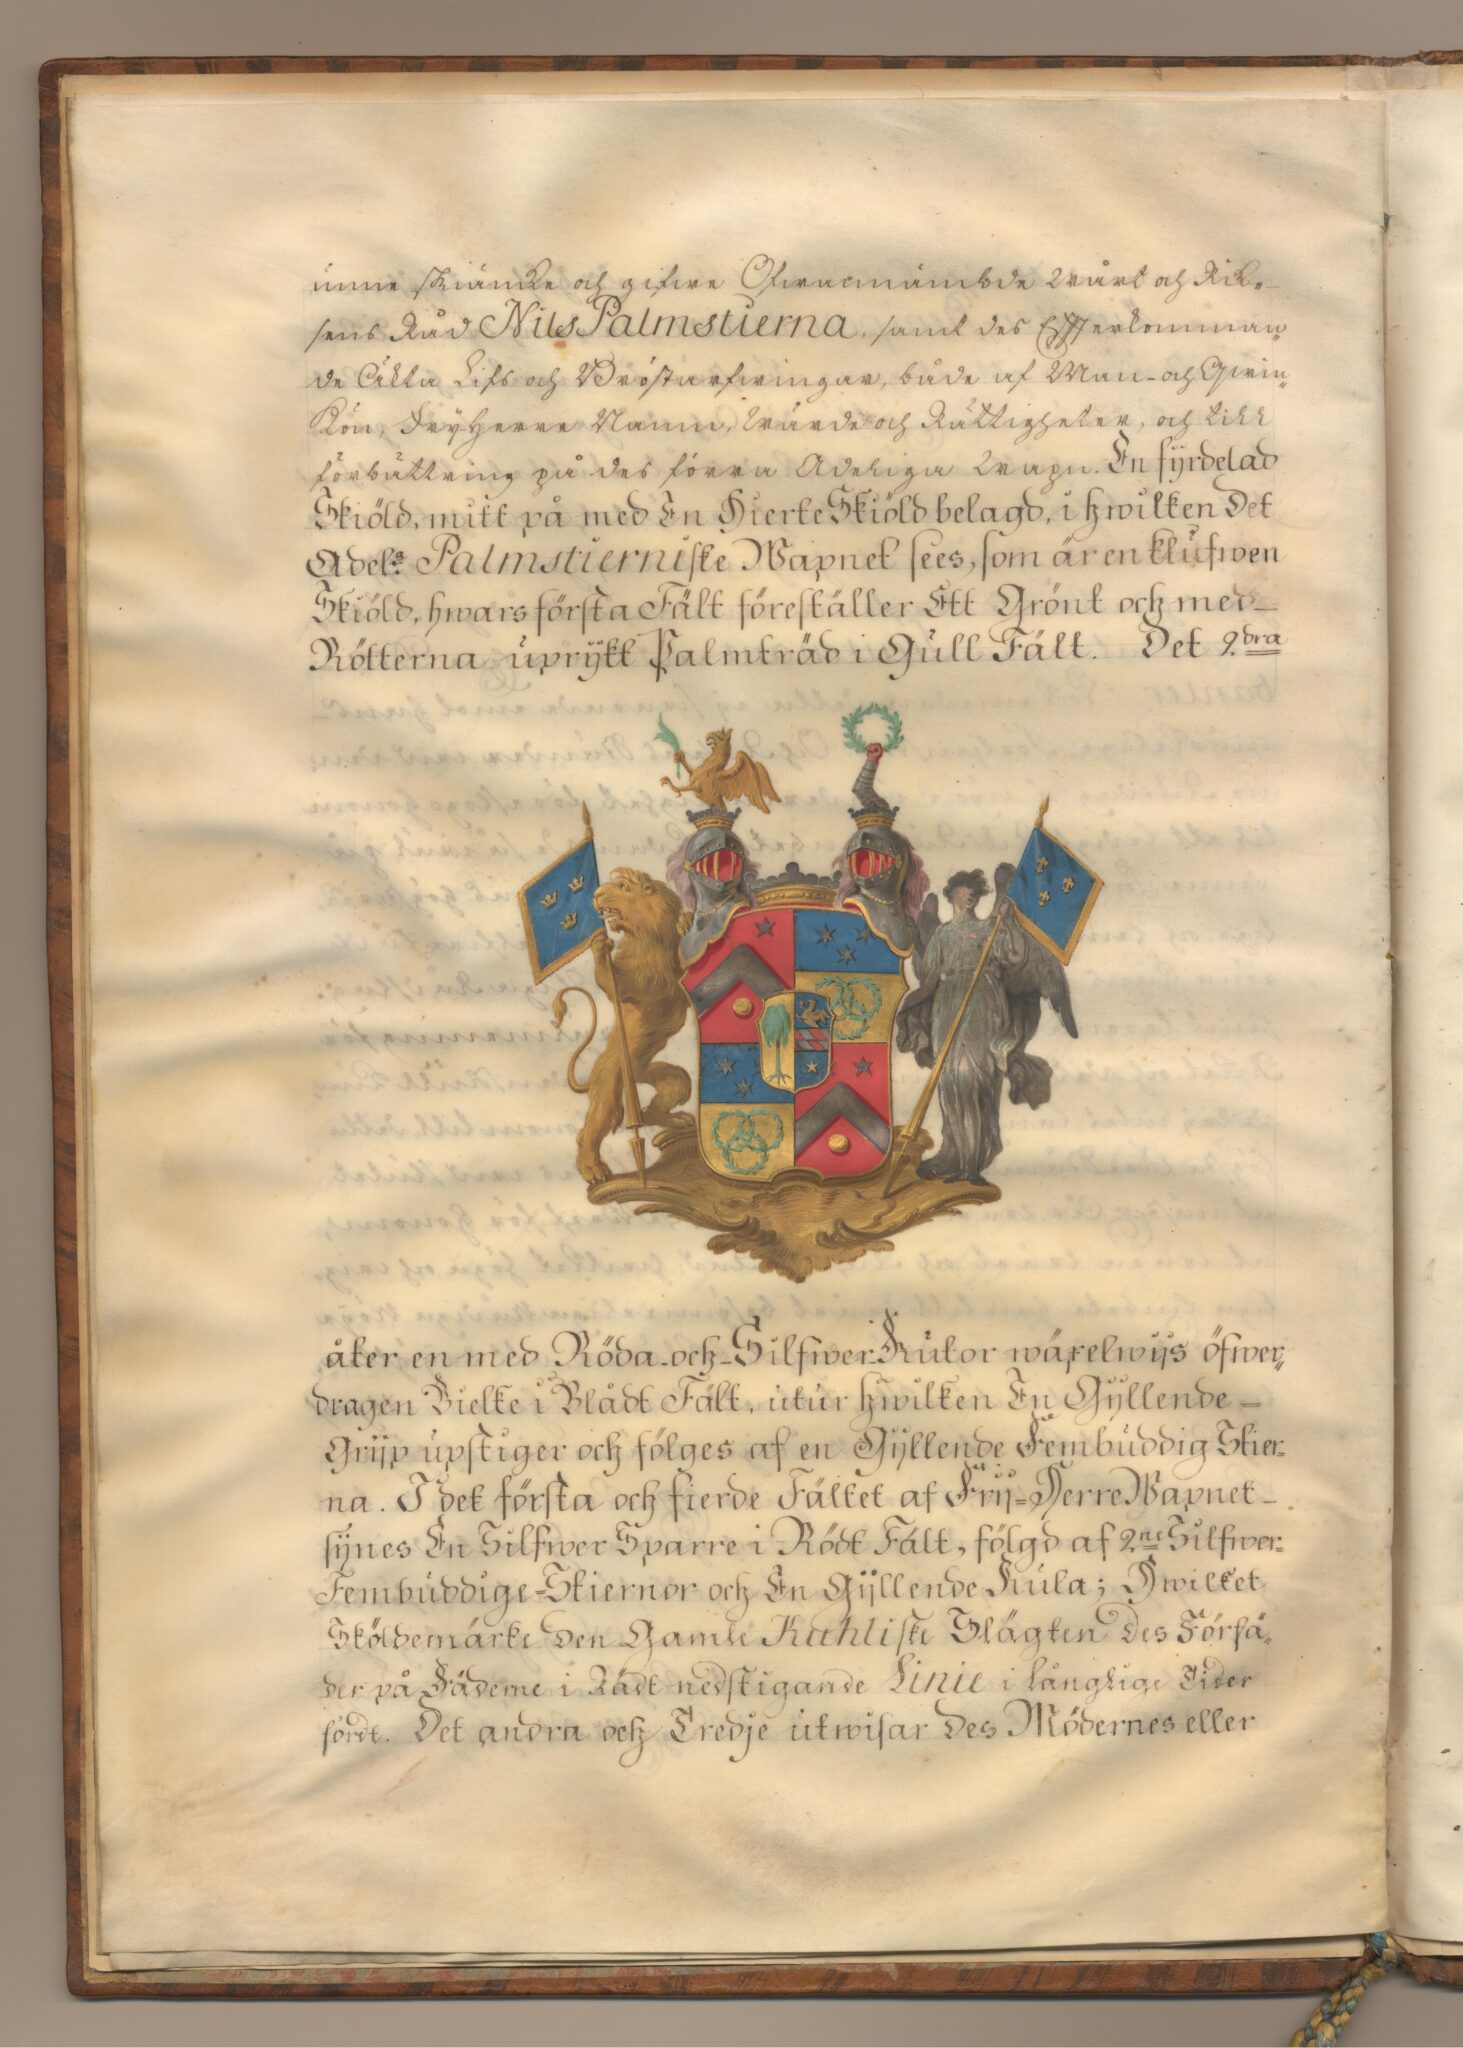 unne skiäncke och gifwe Ofwanmämbde Wårt och Rik-
sens Råd Nils Palmstierna, samt des Effterkomman„
de Ächta Lifs och Bröstarfwingar, både af Man- och Qwin„
Kön, FryHerre Namn, Wärde och Rättigheter, och till
förbättring på des förra Adeliga Wapn. En fyrdelad
Skiöld, mitt på med En HierteSkiöld belagd, i hwilken Det
Adel:a Palmstierniske Wapnet sees, som är en klufwen
Skiöld, hwars första Fält föreställer Ett Grönt och med-
Rötterna uprÿkt Palmträd i Gull Fält. Det 2dra
åter en med Röda-och-Silfwer-Rutor wäxelwijs öfwer„
dragen Bielke i Blådt Fält, utur hwilken En Gyllende-
Grijp upstiger och fölges af en Gÿllende Fembuddig Stier-
na. I det första och fierde Fältet af Frÿ=HerreWapnet-
sÿnes En Silfwer Sparre i Rödt Fält, fölgd af 2ne Silfwer-
Fembuddige=Stiernor och En Gÿllende Kula; Hwilket
Sköldemärke den Gamle Kuhliske Slägten des Förfä„
der på Fäderne i Rädt nedstigande Linie i långlige Tider
fördt. Det andra och Tredje utwisar des Mödernes eller